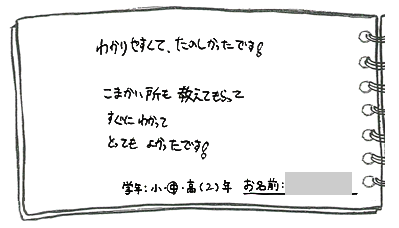 わかりやすくて、たのしかったです!
こまかい所も教えてもらって
すぐにわかって
とってもよかったです!
学年:小・中・高(2)年 お名前: